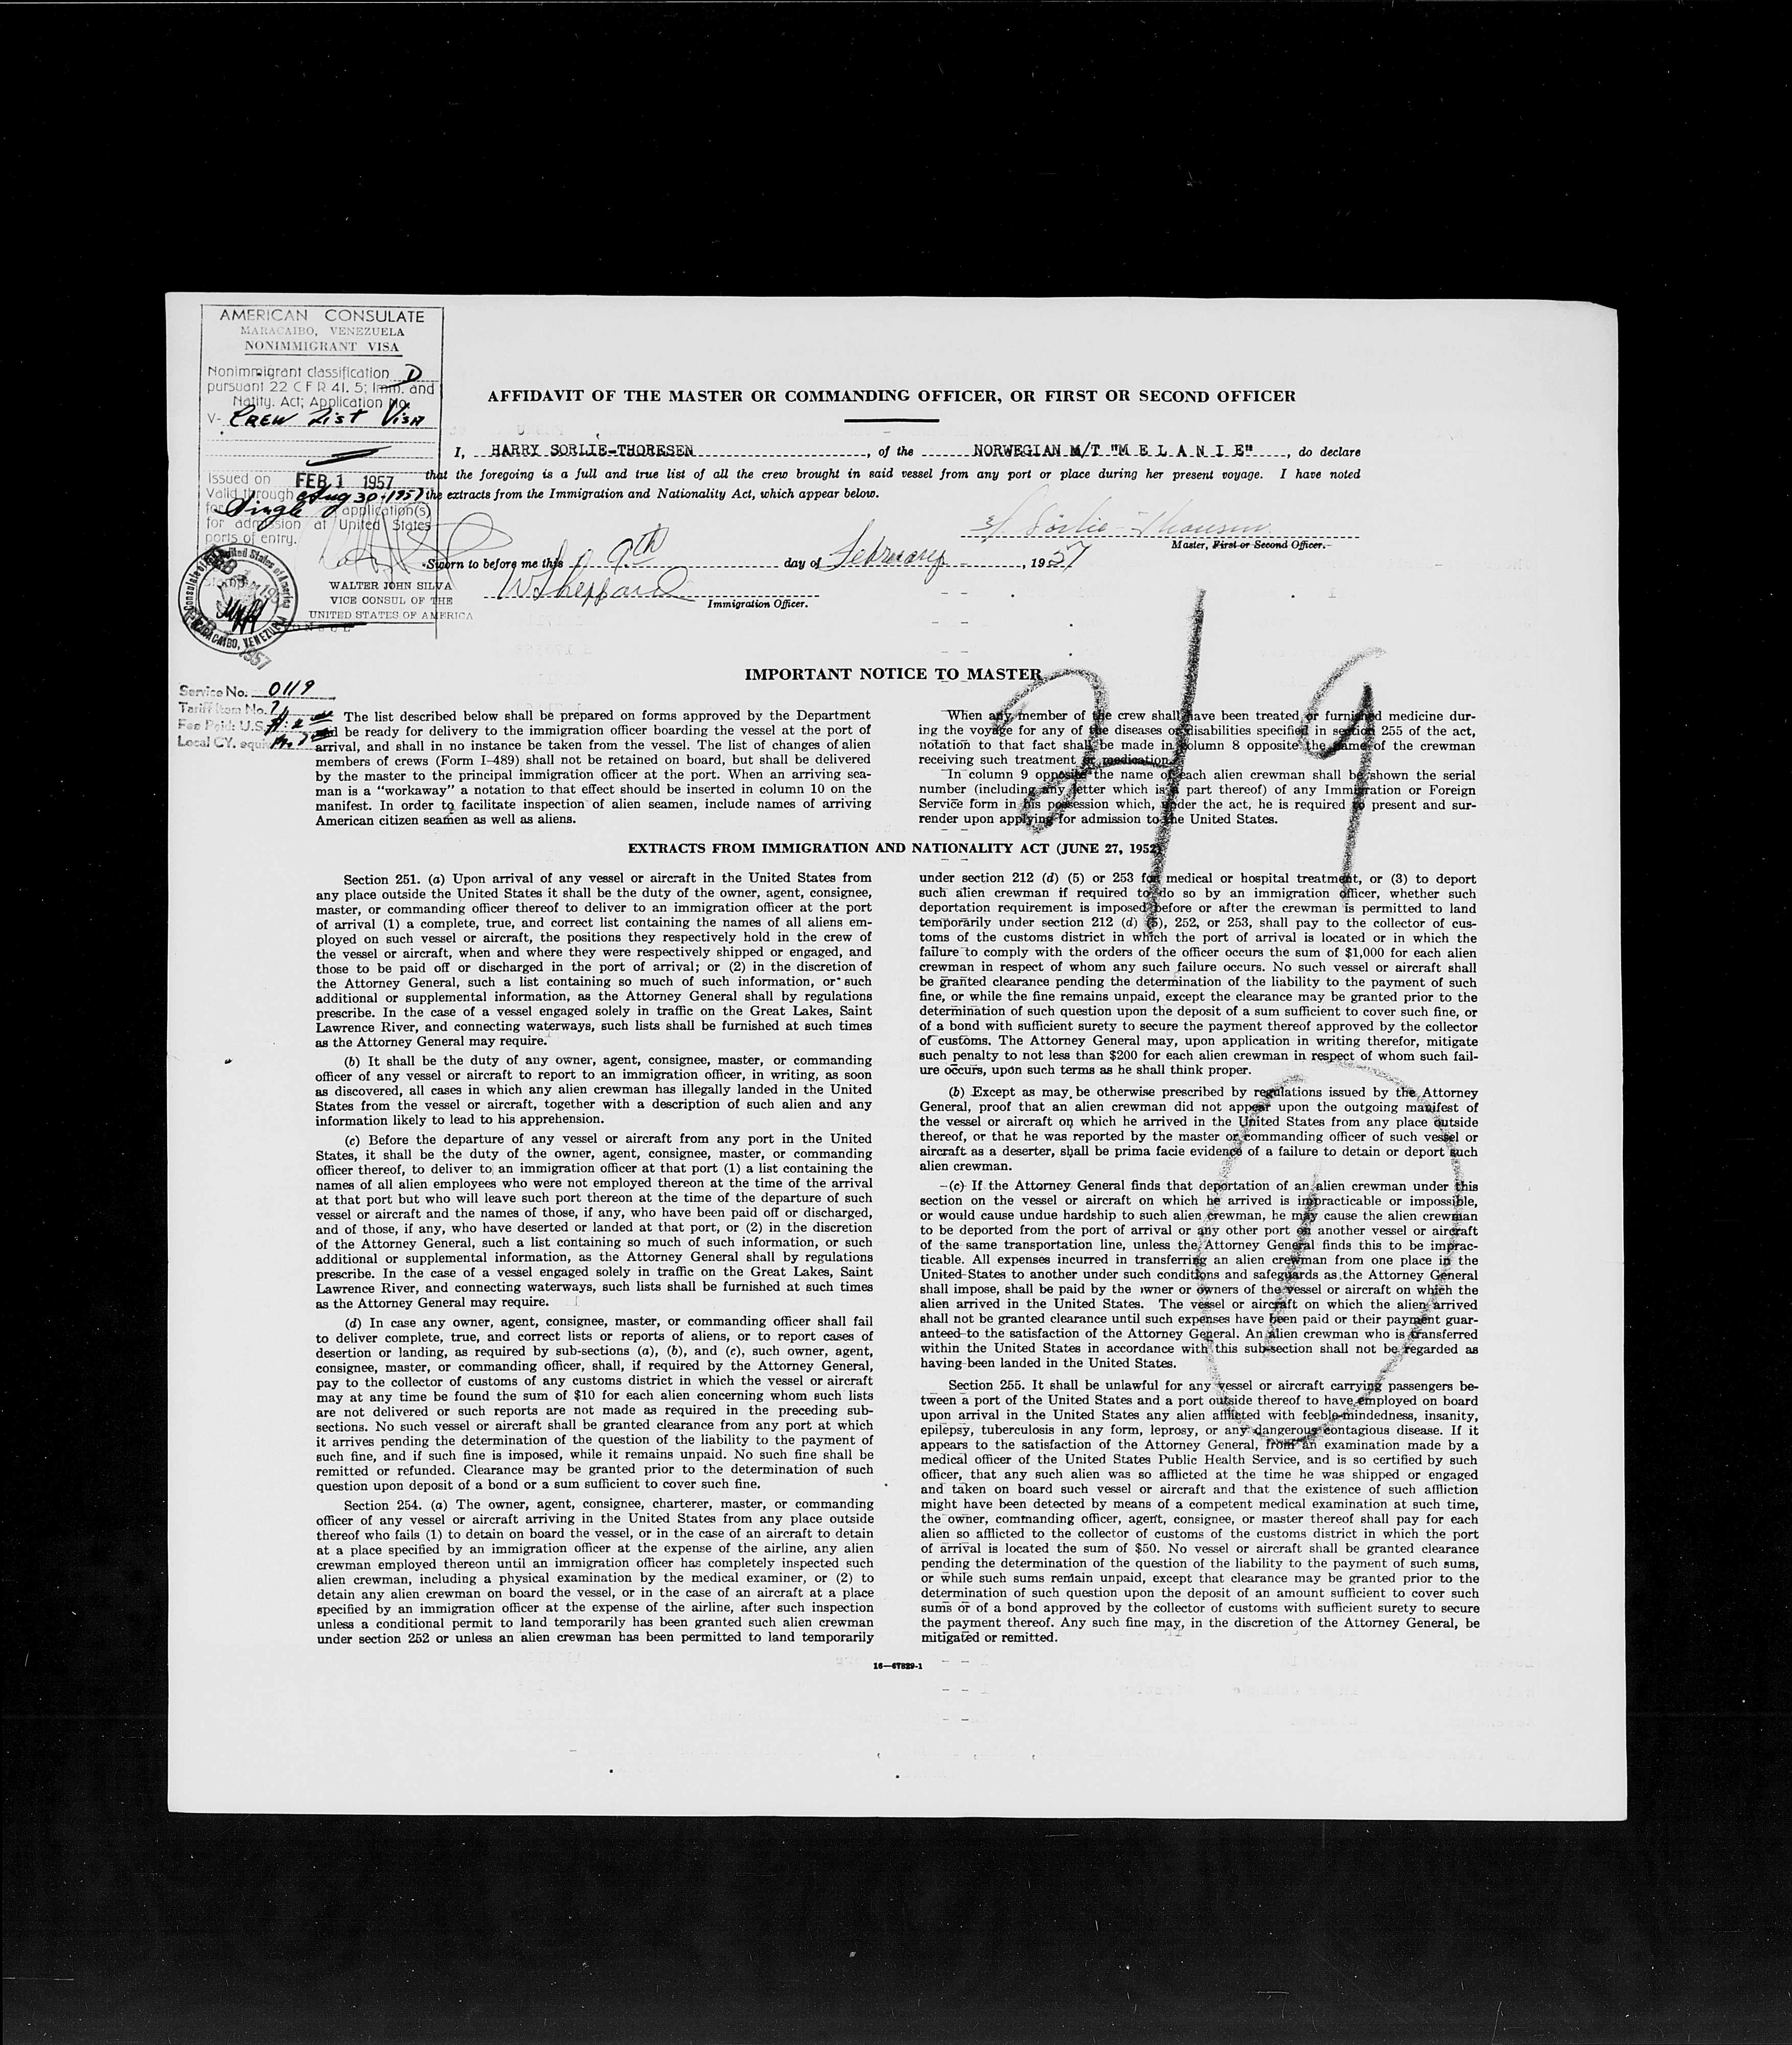 AMERICAN CONSULATE
MARACAIBO, VENEZUELA
NONIMMIGRANT VISA
Nonimmigrant classification D
pursuant 22 C F R 41. 5; Imm. and
Natity. Act; Application No.
V- CREW List VISA
Issued on FEB 1 1957
Valid through Aug 30-1957
for Single application(s)
for admission at United States
ports of entry.
WALTER JOHN SILVA
VICE CONSUL OF THE
UNITED STATES OF AMERICA
MARACAIBO, VENEZUELA
1957
Service No. 0119
Tariff Item No. 7
Fee Paid: U.S.
Local CY. equiv.
AFFIDAVIT OF THE MASTER OR COMMANDING OFFICER, OR FIRST OR SECOND OFFICER
I, HARRY SORLIE-THORESEN, of the NORWEGIAN M/T "M E L A N I E", do declare
that the foregoing is a full and true list of all the crew brought in said vessel from any port or place during her present voyage. I have noted
the extracts from the Immigration and Nationality Act, which appear below.
Sorlie-Thoresen
Master, First or Second Officer.
Sworn to before me this 9th day of February, 1957
W Sheppard
Immigration Officer.
IMPORTANT NOTICE TO MASTER
The list described below shall be prepared on forms approved by the Department
and be ready for delivery to the immigration officer boarding the vessel at the port of
arrival, and shall in no instance be taken from the vessel. The list of changes of alien
members of crews (Form I-489) shall not be retained on board, but shall be delivered
by the master to the principal immigration officer at the port. When an arriving sea-
man is a "workaway" a notation to that effect should be inserted in column 10 on the
manifest. In order to facilitate inspection of alien seamen, include names of arriving
American citizen seamen as well as aliens.
When any member of the crew shall have been treated or furnished medicine dur-
ing the voyage for any of the diseases or disabilities specified in section 255 of the act,
notation to that fact shall be made in column 8 opposite the name of the crewman
receiving such treatment or medication.
In column 9 opposite the name of each alien crewman shall be shown the serial
number (including any letter which is a part thereof) of any Immigration or Foreign
Service form in his possession which, under the act, he is required to present and sur-
render upon applying for admission to the United States.
219
EXTRACTS FROM IMMIGRATION AND NATIONALITY ACT (JUNE 27, 1952)
Section 251. (a) Upon arrival of any vessel or aircraft in the United States from
any place outside the United States it shall be the duty of the owner, agent, consignee,
master, or commanding officer thereof to deliver to an immigration officer at the port
of arrival (1) a complete, true, and correct list containing the names of all aliens em-
ployed on such vessel or aircraft, the positions they respectively hold in the crew of
the vessel or aircraft, when and where they were respectively shipped or engaged, and
those to be paid off or discharged in the port of arrival; or (2) in the discretion of
the Attorney General, such a list containing so much of such information, or such
additional or supplemental information, as the Attorney General shall by regulations
prescribe. In the case of a vessel engaged solely in traffic on the Great Lakes, Saint
Lawrence River, and connecting waterways, such lists shall be furnished at such times
as the Attorney General may require.
(b) It shall be the duty of any owner, agent, consignee, master, or commanding
officer of any vessel or aircraft to report to an immigration officer, in writing, as soon
as discovered, all cases in which any alien crewman has illegally landed in the United
States from the vessel or aircraft, together with a description of such alien and any
information likely to lead to his apprehension.
(c) Before the departure of any vessel or aircraft from any port in the United
States, it shall be the duty of the owner, agent, consignee, master, or commanding
officer thereof, to deliver to an immigration officer at that port (1) a list containing the
names of all alien employees who were not employed thereon at the time of the arrival
at that port but who will leave such port thereon at the time of the departure of such
vessel or aircraft and the names of those, if any, who have been paid off or discharged,
and of those, if any, who have deserted or landed at that port, or (2) in the discretion
of the Attorney General, such a list containing so much of such information, or such
additional or supplemental information, as the Attorney General shall by regulations
prescribe. In the case of a vessel engaged solely in traffic on the Great Lakes, Saint
Lawrence River, and connecting waterways, such lists shall be furnished at such times
as the Attorney General may require.
(d) In case any owner, agent, consignee, master, or commanding officer shall fail
to deliver complete, true, and correct lists or reports of aliens, or to report cases of
desertion or landing, as required by sub-sections (a), (b), and (c), such owner, agent,
consignee, master, or commanding officer, shall, if required by the Attorney General,
pay to the collector of customs of any customs district in which the vessel or aircraft
may at any time be found the sum of $10 for each alien concerning whom such lists
are not delivered or such reports are not made as required in the preceding sub-
sections. No such vessel or aircraft shall be granted clearance from any port at which
it arrives pending the determination of the question of the liability to the payment of
such fine, and if such fine is imposed, while it remains unpaid. No such fine shall be
remitted or refunded. Clearance may be granted prior to the determination of such
question upon deposit of a bond or a sum sufficient to cover such fine.
Section 254. (a) The owner, agent, consignee, charterer, master, or commanding
officer of any vessel or aircraft arriving in the United States from any place outside
thereof who fails (1) to detain on board the vessel, or in the case of an aircraft to detain
at a place specified by an immigration officer at the expense of the airline, any alien
crewman employed thereon until an immigration officer has completely inspected such
alien crewman, including a physical examination by the medical examiner, or (2) to
detain any alien crewman on board the vessel, or in the case of an aircraft at a place
specified by an immigration officer at the expense of the airline, after such inspection
unless a conditional permit to land temporarily has been granted such alien crewman
under section 252 or unless an alien crewman has been permitted to land temporarily
under section 212 (d) (5) or 253 for medical or hospital treatment, or (3) to deport
such alien crewman if required to do so by an immigration officer, whether such
deportation requirement is imposed before or after the crewman is permitted to land
temporarily under section 212 (d) (5), 252, or 253, shall pay to the collector of cus-
toms of the customs district in which the port of arrival is located or in which the
failure to comply with the orders of the officer occurs the sum of $1,000 for each alien
crewman in respect of whom any such failure occurs. No such vessel or aircraft shall
be granted clearance pending the determination of the liability to the payment of such
fine, or while the fine remains unpaid, except the clearance may be granted prior to the
determination of such question upon the deposit of a sum sufficient to cover such fine, or
of a bond with sufficient surety to secure the payment thereof approved by the collector
of customs. The Attorney General may, upon application in writing therefor, mitigate
such penalty to not less than $200 for each alien crewman in respect of whom such fail-
ure occurs, upon such terms as he shall think proper.
(b) Except as may be otherwise prescribed by regulations issued by the Attorney
General, proof that an alien crewman did not appear upon the outgoing manifest of
the vessel or aircraft on which he arrived in the United States from any place outside
thereof, or that he was reported by the master or commanding officer of such vessel or
aircraft as a deserter, shall be prima facie evidence of a failure to detain or deport such
alien crewman.
(c) If the Attorney General finds that deportation of an alien crewman under this
section on the vessel or aircraft on which he arrived is impracticable or impossible,
or would cause undue hardship to such alien crewman, he may cause the alien crewman
to be deported from the port of arrival or any other port on another vessel or aircraft
of the same transportation line, unless the Attorney General finds this to be imprac-
ticable. All expenses incurred in transferring an alien crewman from one place in the
United States to another under such conditions and safeguards as the Attorney General
shall impose, shall be paid by the owner or owners of the vessel or aircraft on which the
alien arrived in the United States. The vessel or aircraft on which the alien arrived
shall not be granted clearance until such expenses have been paid or their payment guar-
anteed to the satisfaction of the Attorney General. An alien crewman who is transferred
within the United States in accordance with this subsection shall not be regarded as
having been landed in the United States.
1
Section 255. It shall be unlawful for any vessel or aircraft carrying passengers be-
tween a port of the United States and a port outside thereof to have employed on board
upon arrival in the United States any alien afflicted with feeble-mindedness, insanity,
epilepsy, tuberculosis in any form, leprosy, or any dangerous contagious disease. If it
appears to the satisfaction of the Attorney General, from an examination made by a
medical officer of the United States Public Health Service, and is so certified by such
officer, that any such alien was so afflicted at the time he was shipped or engaged
and taken on board such vessel or aircraft and that the existence of such affliction
might have been detected by means of a competent medical examination at such time,
the owner, commanding officer, agent, consignee, or master thereof shall pay for each
alien so afflicted to the collector of customs of the customs district in which the port
of arrival is located the sum of $50. No vessel or aircraft shall be granted clearance
pending the determination of the question of the liability to the payment of such sums,
or while such sums remain unpaid, except that clearance may be granted prior to the
determination of such question upon the deposit of an amount sufficient to cover such
sums or of a bond approved by the collector of customs with sufficient surety to secure
the payment thereof. Any such fine may, in the discretion of the Attorney General, be
mitigated or remitted.
16—67829-1